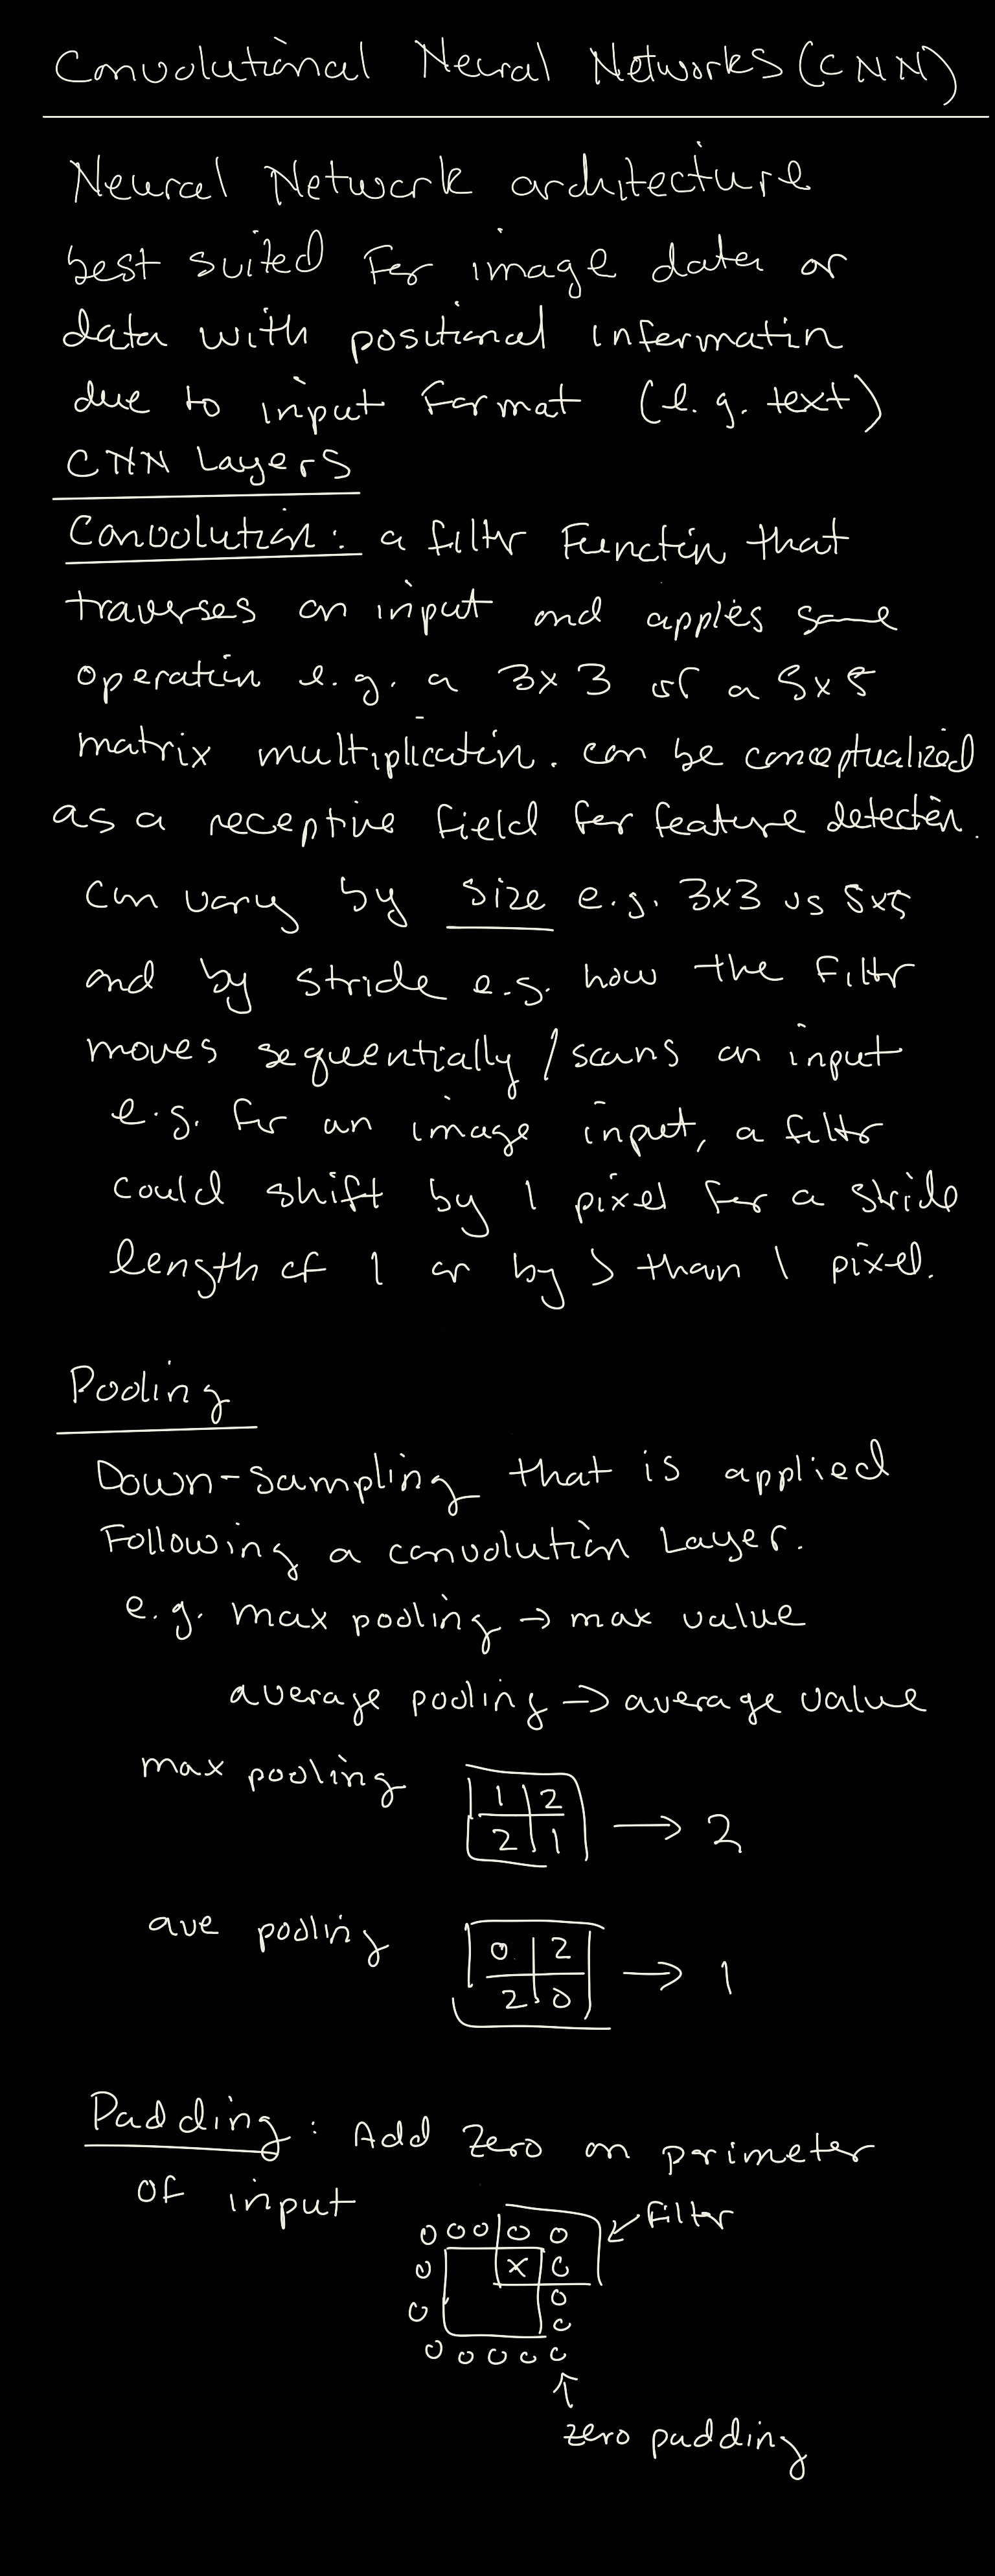 Convolutional Neural Networks (CNN)
Neural Network architecture
best suited For image data or
data with positional information
due to input Format (e.g. text)
CNN Layers
Convolution: a filter Function that
traverses an input and applies some
operation e.g. a 3x3 or a 5x5
matrix multiplication. can be conceptualized
as a receptive field for feature detection.
can vary by size e.g. 3x3 vs 5x5
and by stride e.g. how the Filter
moves sequentially / scans an input
e.g. for an image input, a filter
could shift by 1 pixel For a stride
length of 1 or by > than 1 pixel.
Pooling
Down-sampling that is applied
Following a convolution Layer.
e.g. max pooling → max value
average pooling → average value
max pooling
1 2
2 1 → 2
ave pooling
0 2
2 0 → 1
Padding: Add zero on perimeter
of input
Filter
0 0 0 0 0
0 X 0
0
0 0
0 0 0 0 0
zero padding